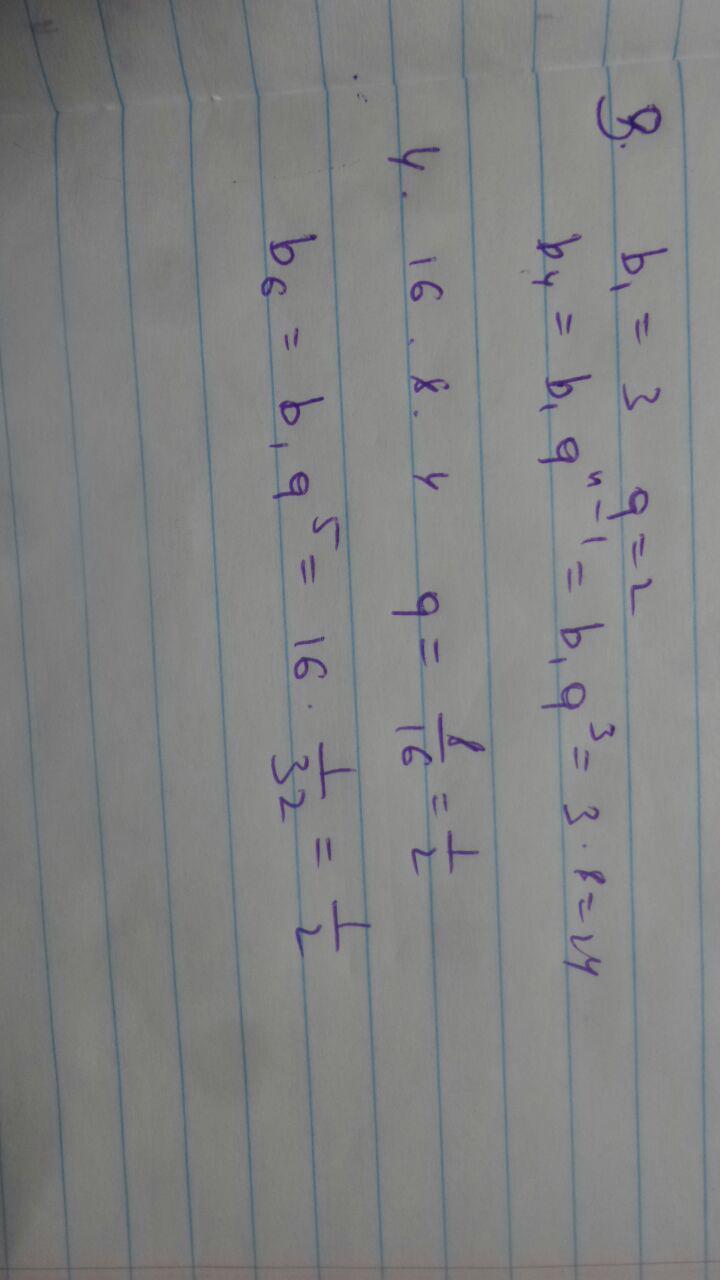 3. b₁ = 3 q = 2
b₄ = b₁ qⁿ⁻¹ = b₁ q³ = 3 · 8 = 24
4. 16. 8. 4 q = 8/16 = 1/2
b₆ = b₁ q⁵ = 16 · 1/32 = 1/2